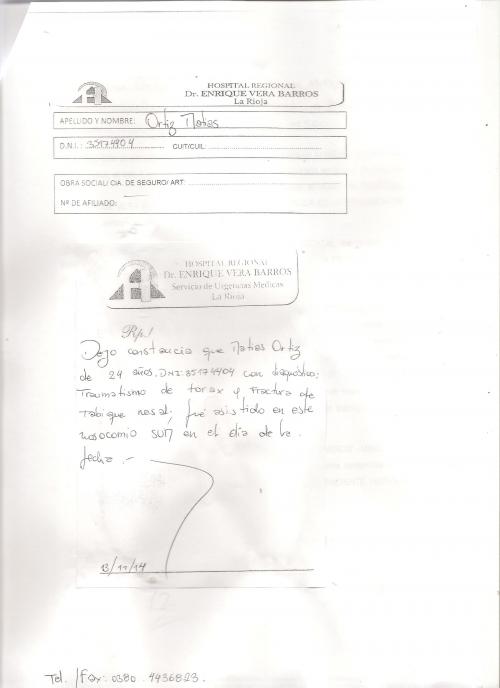 HOSPITAL REGIONAL
Dr. ENRIQUE VERA BARROS
La Rioja
APELLIDO Y NOMBRE: Ortiz Matias
D.N.I.: 35174404 CUIT/CUIL:
OBRA SOCIAL/ CIA. DE SEGURO/ ART:
Nº DE AFILIADO:
HOSPITAL REGIONAL
Dr. ENRIQUE VERA BARROS
Servicio de Urgencias Medicas
La Rioja
Rp./
Dejo constancia que Matias Ortiz
de 24 años, DNI: 35174404 con diagnóstico:
Traumatismo de torax y Fractura de
Tabique nasal; fué asistido en este
nosocomio SUM en el día de la
fecha.-
13/11/14
Tel. /Fax: 0380 . 4436823.